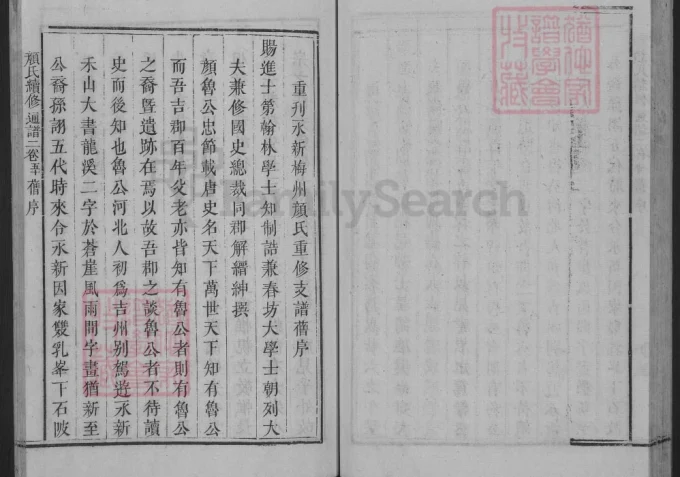 重刊永新梅州顔氏重修支譜舊序
賜進士第翰林學士知制誥兼春坊大學士朝列大
夫兼修國史總裁同郡解縉紳撰
顔魯公忠節載唐史名天下萬世天下知有魯公
而吾吉郡百年父老亦皆知有魯公者則有魯公
之裔暨遺跡在焉以故吾郡之談魯公者不待讀
史而後知也魯公河北人初爲吉州别駕遊永新
禾山大書龍溪二字於蒼崖風雨間字畫猶新至
公裔孫詡五代時來令永新因家雙乳峯下石陂
顔氏續修通譜二卷 舊序
FamilySearch
譜學會
收藏